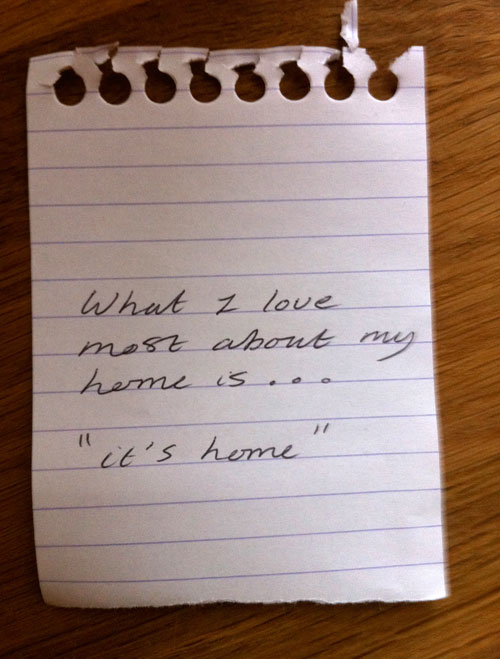 What I love
most about my
home is...
"it's home"